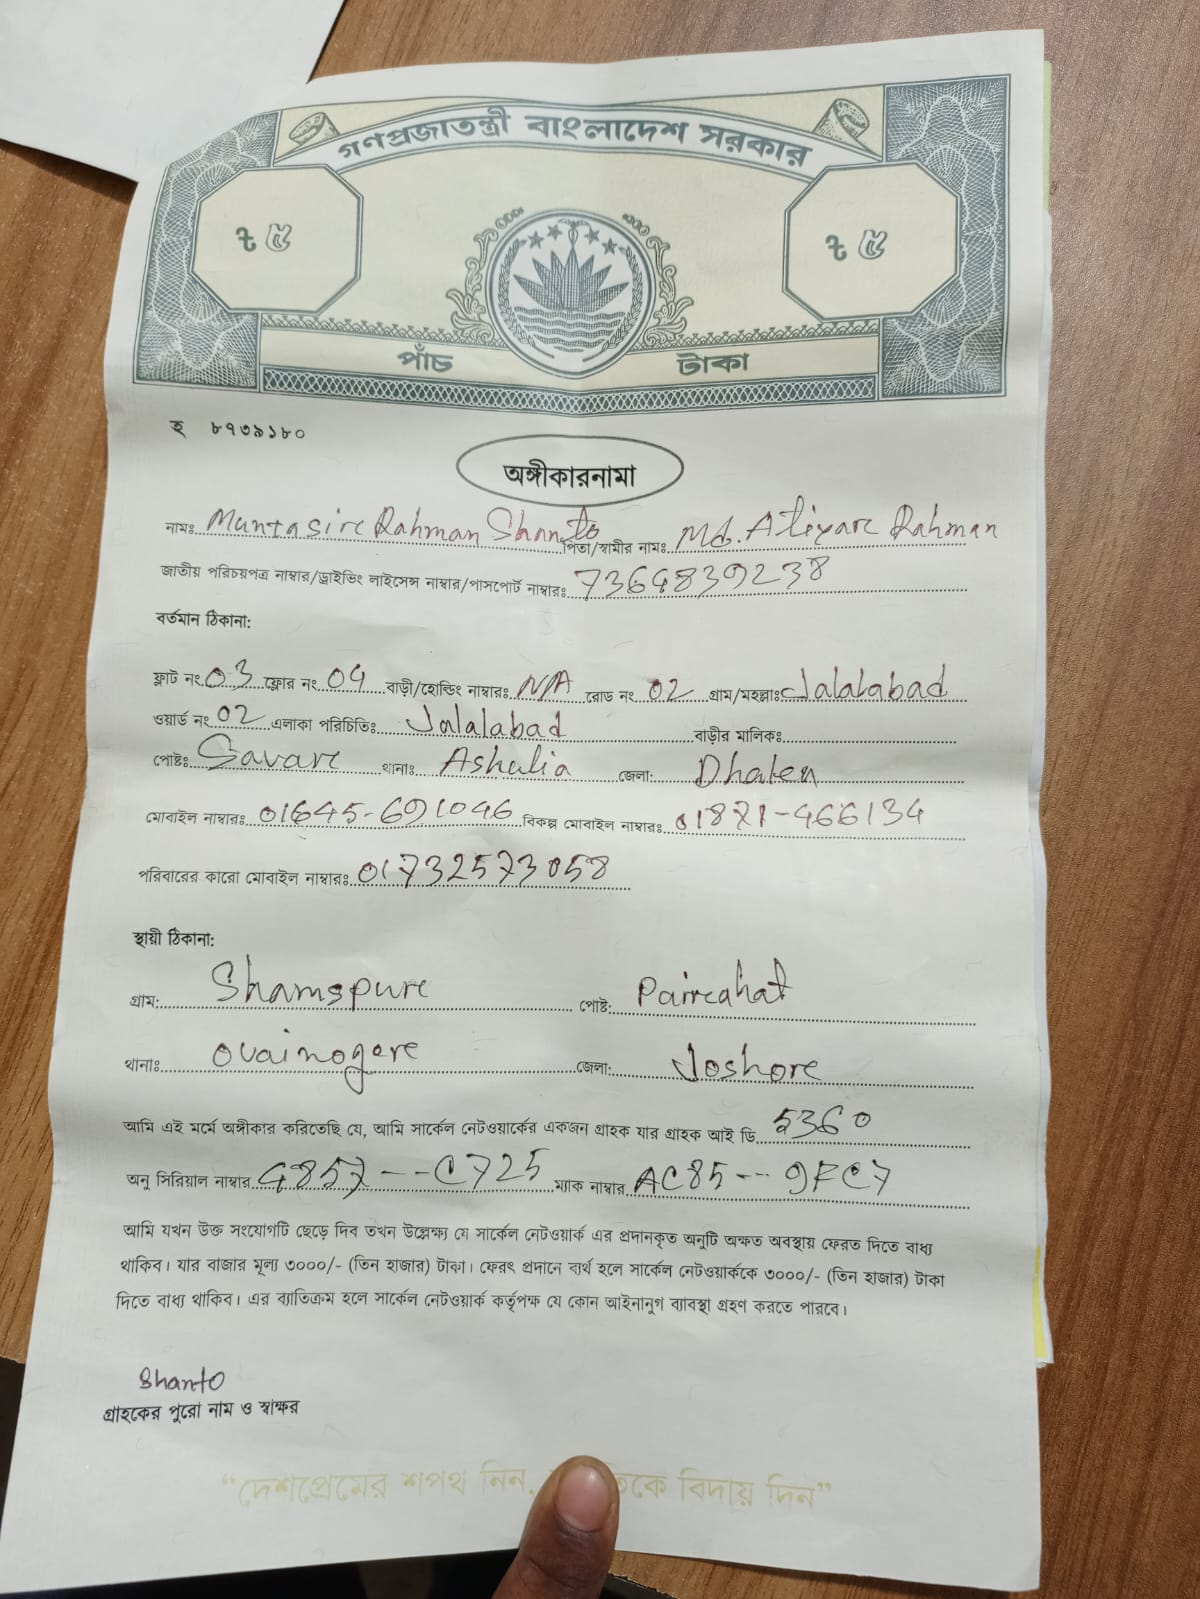 গণপ্রজাতন্ত্রী বাংলাদেশ সরকার
৳ ৫ ৳ ৫
পাঁচ টাকা
হ ৮৭৩৯১৮০
অঙ্গীকারনামা
নামঃ Muntasire Rahman Shanto পিতা/স্বামীর নামঃ Md. Atiyare Rahman
জাতীয় পরিচয়পত্র নাম্বার/ড্রাইভিং লাইসেন্স নাম্বার/পাসপোর্ট নাম্বারঃ 7364839238
বর্তমান ঠিকানা:
ফ্লাট নং 03 ফ্লোর নং 04 বাড়ী/হোল্ডিং নাম্বারঃ N/A রোড নং 02 গ্রাম/মহল্লাঃ Jalalabad
ওয়ার্ড নং 02 এলাকা পরিচিতিঃ Jalalabad বাড়ীর মালিকঃ
পোষ্টঃ Savare থানাঃ Ashulia জেলা: Dhaka
মোবাইল নাম্বারঃ 01645-691046 বিকল্প মোবাইল নাম্বারঃ 01871-466134
পরিবারের কারো মোবাইল নাম্বারঃ 01732573058
স্থায়ী ঠিকানা:
গ্রাম: Shamspure পোষ্ট: Pairrahat
থানাঃ Ovainogore জেলা: Joshore
আমি এই মর্মে অঙ্গীকার করিতেছি যে, আমি সার্কেল নেটওয়ার্কের একজন গ্রাহক যার গ্রাহক আই ডি 5360
অনু সিরিয়াল নাম্বার 4857--C725 ম্যাক নাম্বার AC85--9FC7
আমি যখন উক্ত সংযোগটি ছেড়ে দিব তখন উল্লেক্ষ্য যে সার্কেল নেটওয়ার্ক এর প্রদানকৃত অনুটি অক্ষত অবস্থায় ফেরত দিতে বাধ্য
থাকিব। যার বাজার মূল্য ৩০০০/- (তিন হাজার) টাকা। ফেরৎ প্রদানে ব্যর্থ হলে সার্কেল নেটওয়ার্ককে ৩০০০/- (তিন হাজার) টাকা
দিতে বাধ্য থাকিব। এর ব্যাতিক্রম হলে সার্কেল নেটওয়ার্ক কর্তৃপক্ষ যে কোন আইনানুগ ব্যাবস্থা গ্রহণ করতে পারবে।
Shanto
গ্রাহকের পুরো নাম ও স্বাক্ষর
“দেশপ্রেমের শপথ নিন, বিদায় দিন”